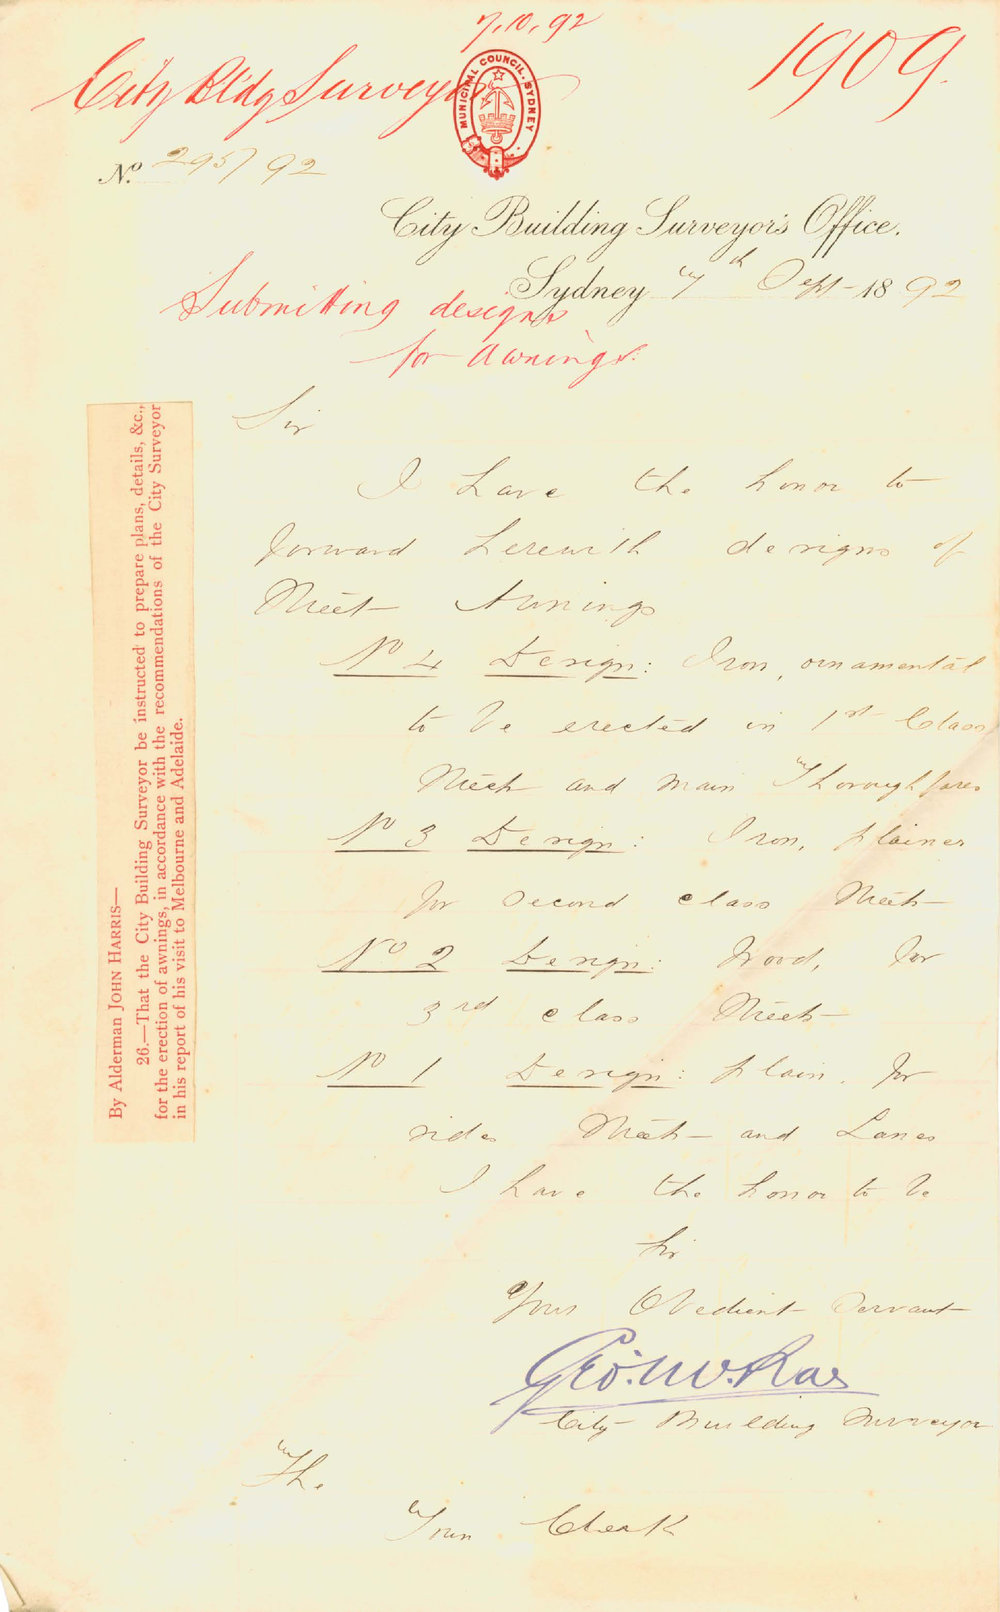 7.10.92
City Bldg Surveyor
1909.
MUNICIPAL COUNCIL, SYDNEY
No. 295/92
City Building Surveyor's Office.
Sydney 7th Sept 1892
Submitting designs
for Awnings.
Sir
I have the honor to
forward herewith designs of
Street Awnings
No 4 Design: Iron, ornamental
to be erected in 1st Class
Streets and main Thoroughfares
No 3 Design: Iron, plainer
for second class Streets
No 2 Design: Wood, for
3rd class Streets
No 1 Design: plain, for
sides Streets and Lanes
I have the honor to be
Sir
Your Obedient Servant
Geo. McRae
City Building Surveyor
The
Town Clerk
By Alderman JOHN HARRIS—
26.—That the City Building Surveyor be instructed to prepare plans, details, &c.,
for the erection of awnings, in accordance with the recommendations of the City Surveyor
in his report of his visit to Melbourne and Adelaide.